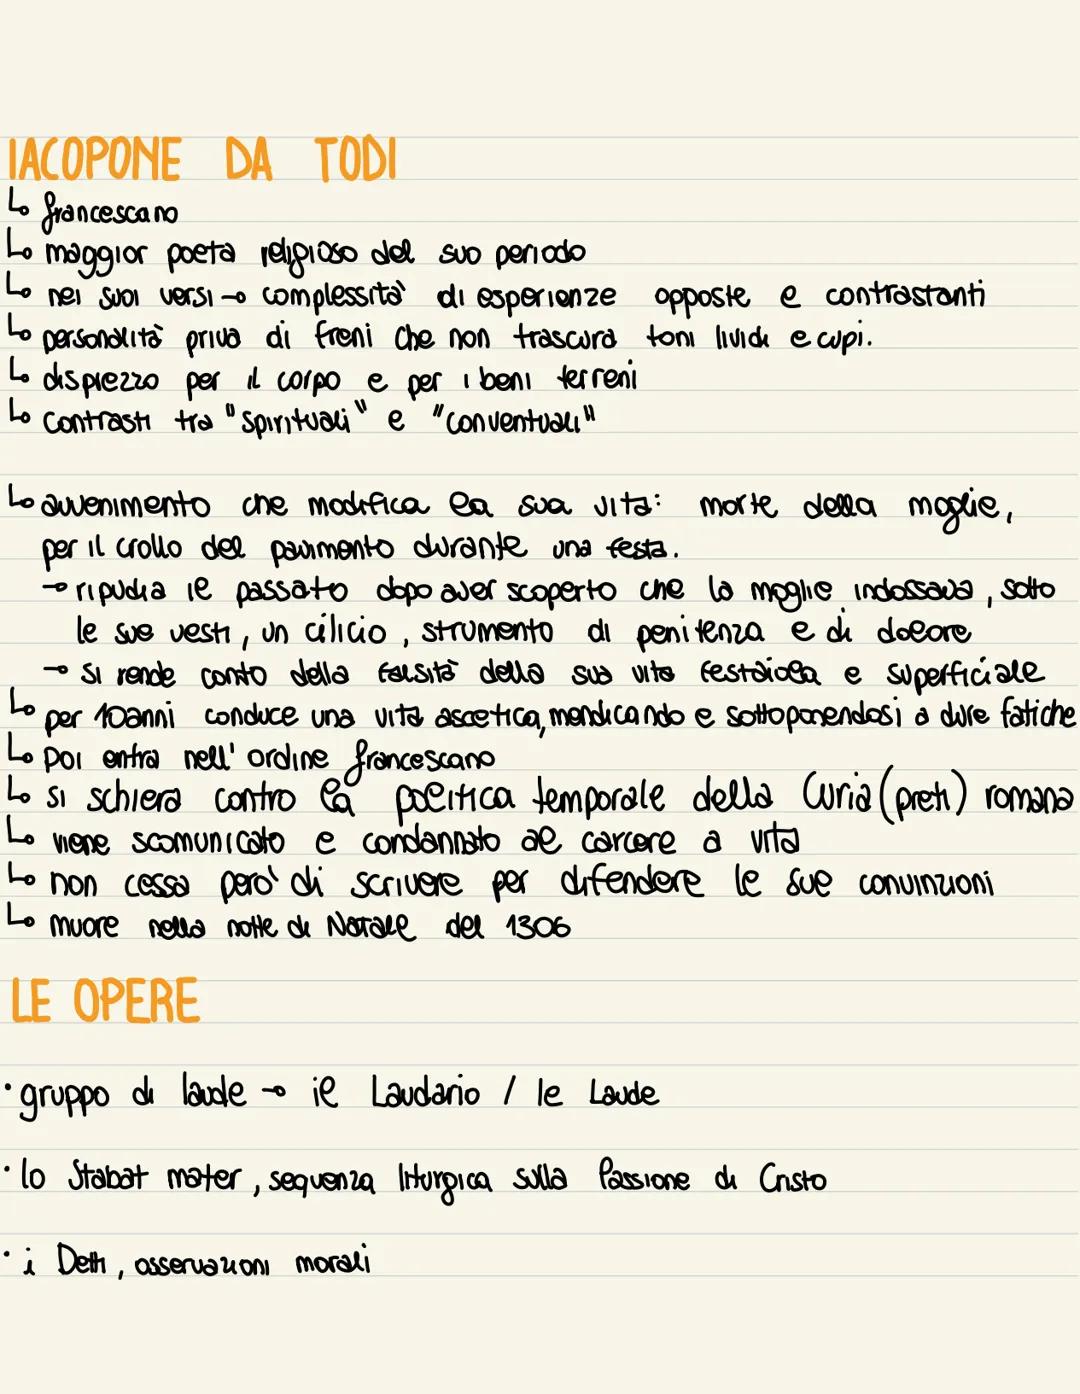 IACOPONE DA TODI
↳ francescano
↳ maggior poeta religioso del suo periodo
↳ nei suoi versi → complessità di esperienze opposte e contrastanti
↳ personalità priva di freni che non trascura toni lividi e cupi.
↳ disprezzo per il corpo e per i beni terreni
↳ contrasti tra "Spirituali" e "Conventuali"
↳ avvenimento che modifica la sua vita: morte della moglie,
per il crollo del pavimento durante una festa.
→ ripudia il passato dopo aver scoperto che la moglie indossava, sotto
le sue vesti, un cilicio, strumento di penitenza e di dolore
→ si rende conto della falsità della sua vita festaiola e superficiale
↳ per 10anni conduce una vita ascetica, mendicando e sottoponendosi a dure fatiche
↳ poi entra nell'ordine francescano
↳ si schiera contro la politica temporale della Curia (preti) romana
↳ viene scomunicato e condannato al carcere a vita
↳ non cessa però di scrivere per difendere le sue convinzioni
↳ muore nella notte di Natale del 1306
LE OPERE
· gruppo di laude → il Laudario / le Laude
· lo Stabat mater, sequenza liturgica sulla Passione di Cristo
· i Detti, osservazioni morali